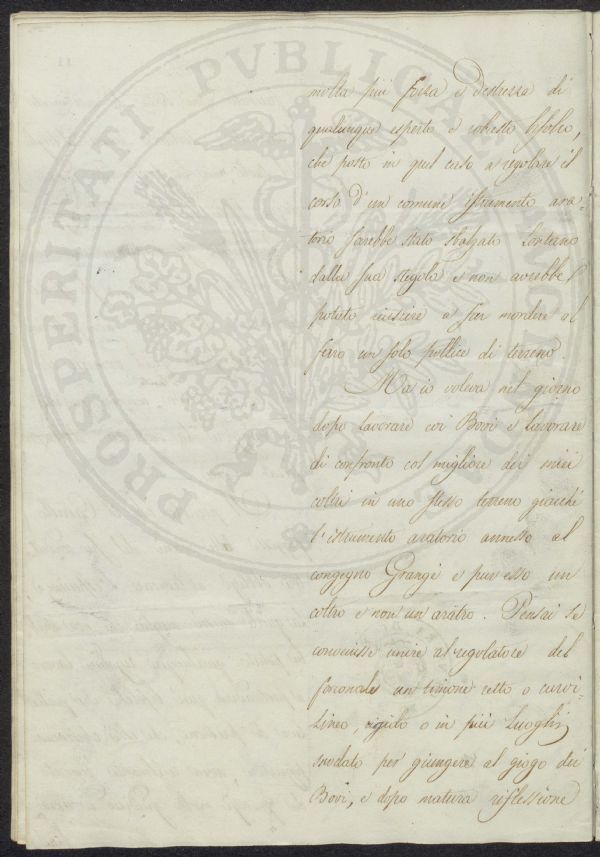 PROSPERITATI PVBLICAE
molta più forza e destrezza di
qualunque esperto e robusto bifolco,
che posto in quel caso a regolare il
corso d'un comune istrumento ara-
torio sarebbe stato sbalzato lontano
dalla sua stegola e non avrebbe
potuto riuscire a far mordere al
ferro un solo pollice di terreno.
Ma io voleva nel giorno
dopo lavorare coi Bovi e lavorare
di confronto col migliore dei miei
coltri in uno stesso terreno giacché
l'istrumento aratorio annesso al
congegno Grangé è pur esso un
coltro e non un aratro. Pensai se
convenisse unire al regolatore del
un timone retto o curvi-
lineo, rigido o in più Luoghi
snodato per giungere al giogo dei
Bovi, e dopo matura riflessione